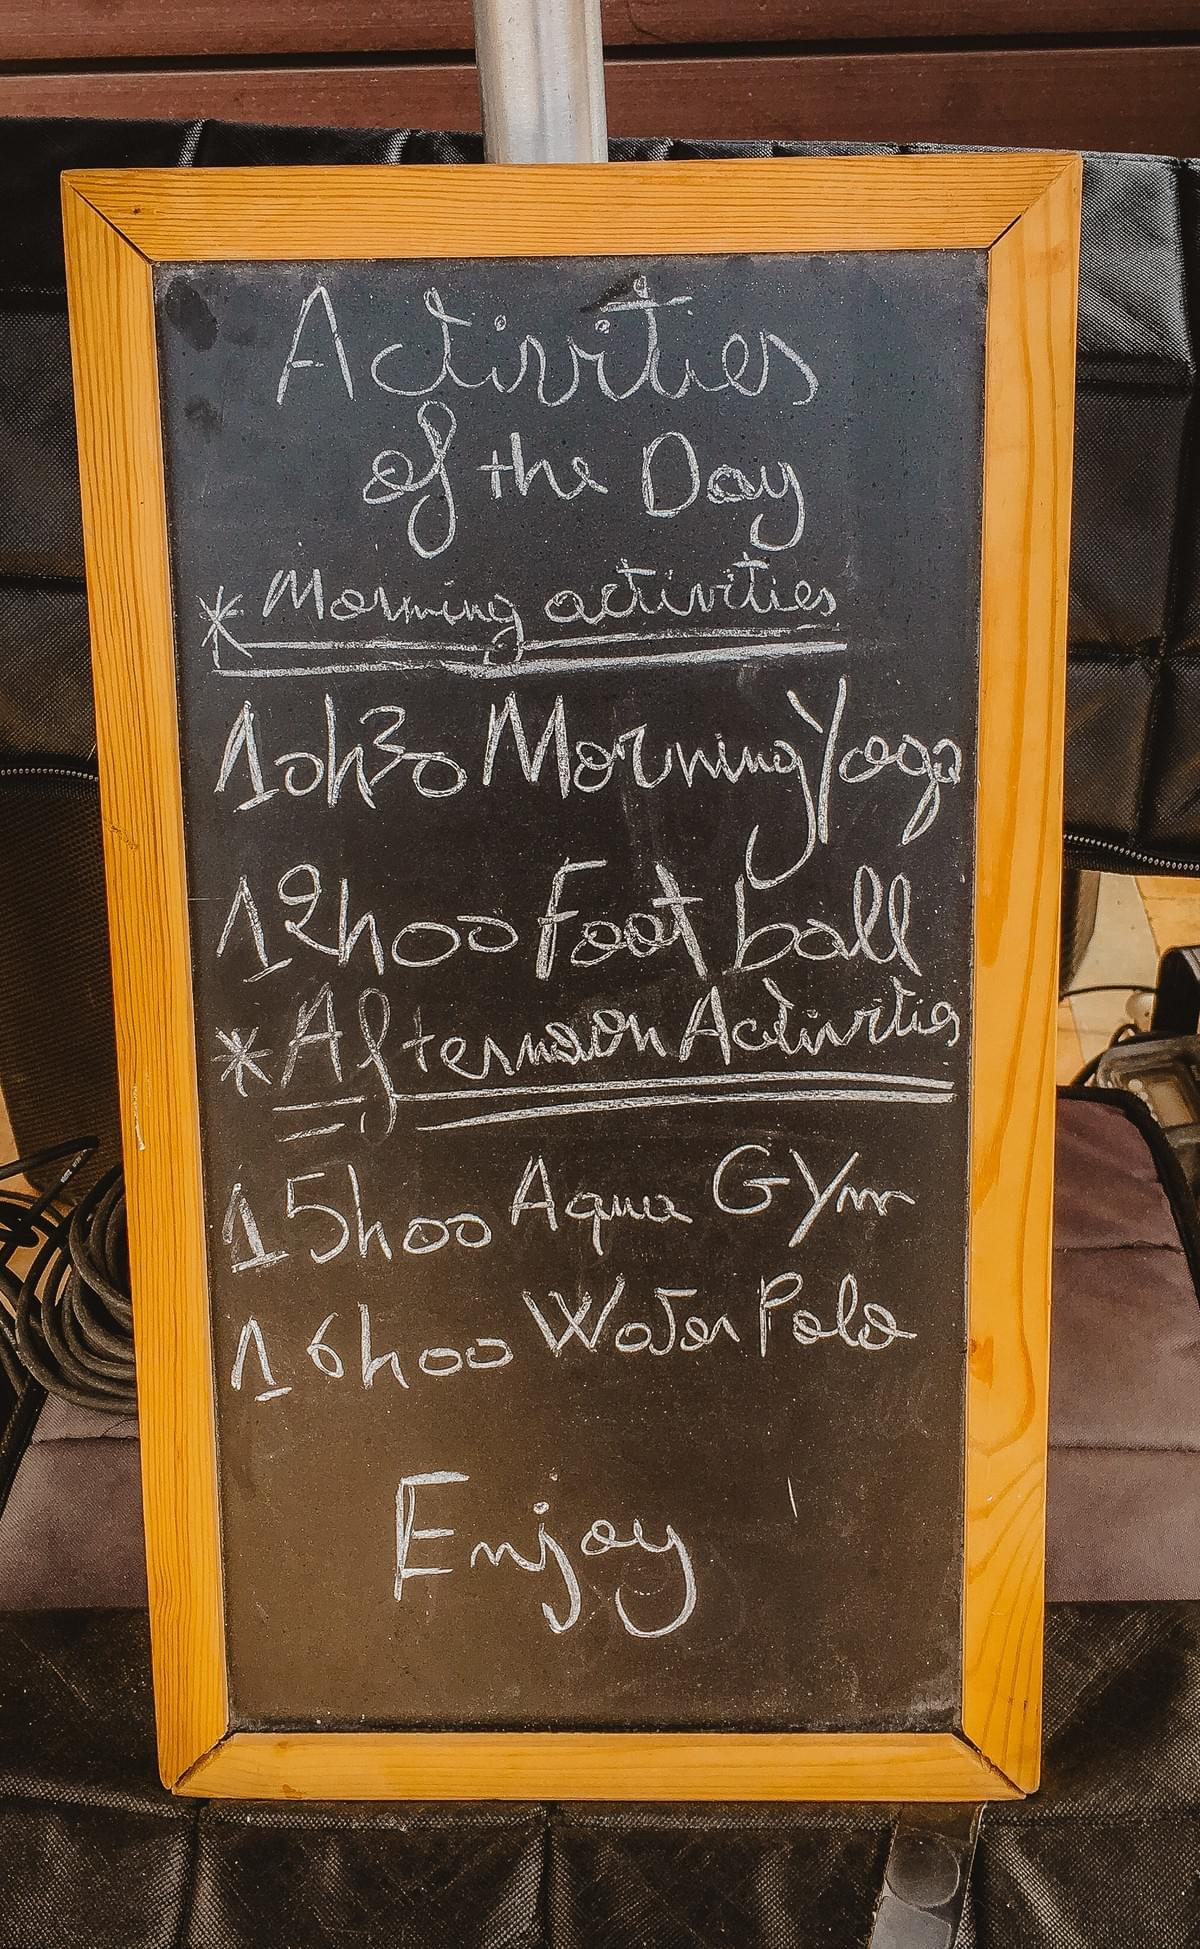 Activities
of the Day
* Morning activities
10h30 Morning Yoga
12h00 Foot ball
* Afternoon Activities
15h00 Aqua GYm
16h00 Water Polo
Enjoy